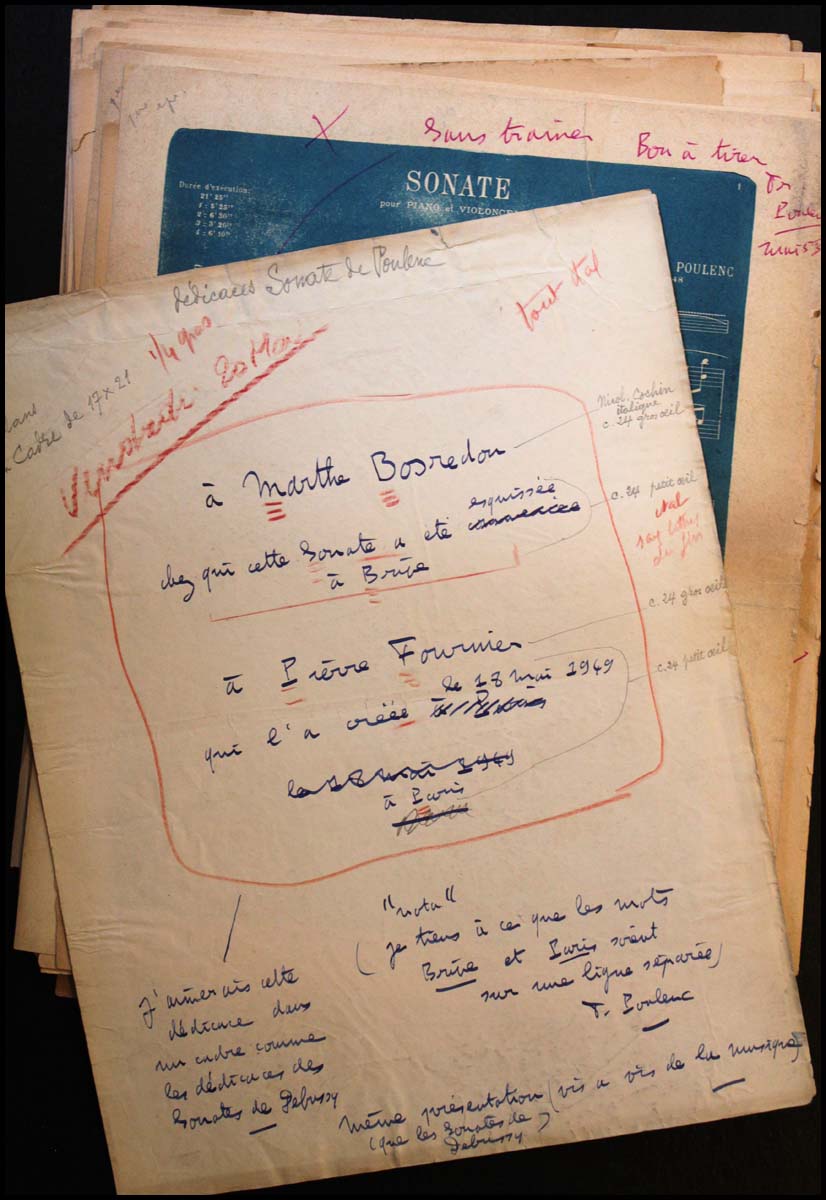 X
Sans traîner
Bon à tirer
Fr.
Poulenc
mai 53
Durée d'exécution:
21' 25"
1 : 5' 25"
2 : 6' 30"
3 : 3' 20"
4 : 6' 10"
SONATE
pour PIANO et VIOLONCE
1
POULENC
48
dédicaces Sonate de Poulenc
1/4 gras
tout ital
Cadre de 17 x 21
Vendredi 20 Mai
Nicol. Cochin
italique
c. 24 gros œil
à Marthe Bosredon
esquissée
c. 24 petit œil
chez qui cette Sonate a été commencée
à Brive
ital
c. 24 gros œil
à Pierre Fournier
le 18 mai 1949
c. 24 petit œil
qui l'a créée à Paris
le 18 mai 1949
à Paris
Paris
"nota"
(je tiens à ce que les mots
Brive et Paris soient
sur une ligne séparée)
Fr. Poulenc
J'aimerais cette
dédicace dans
un cadre comme
les dédicaces des
Sonates de Debussy
même présentation (vis a vis de la musique)
(que les Sonates de
Debussy)